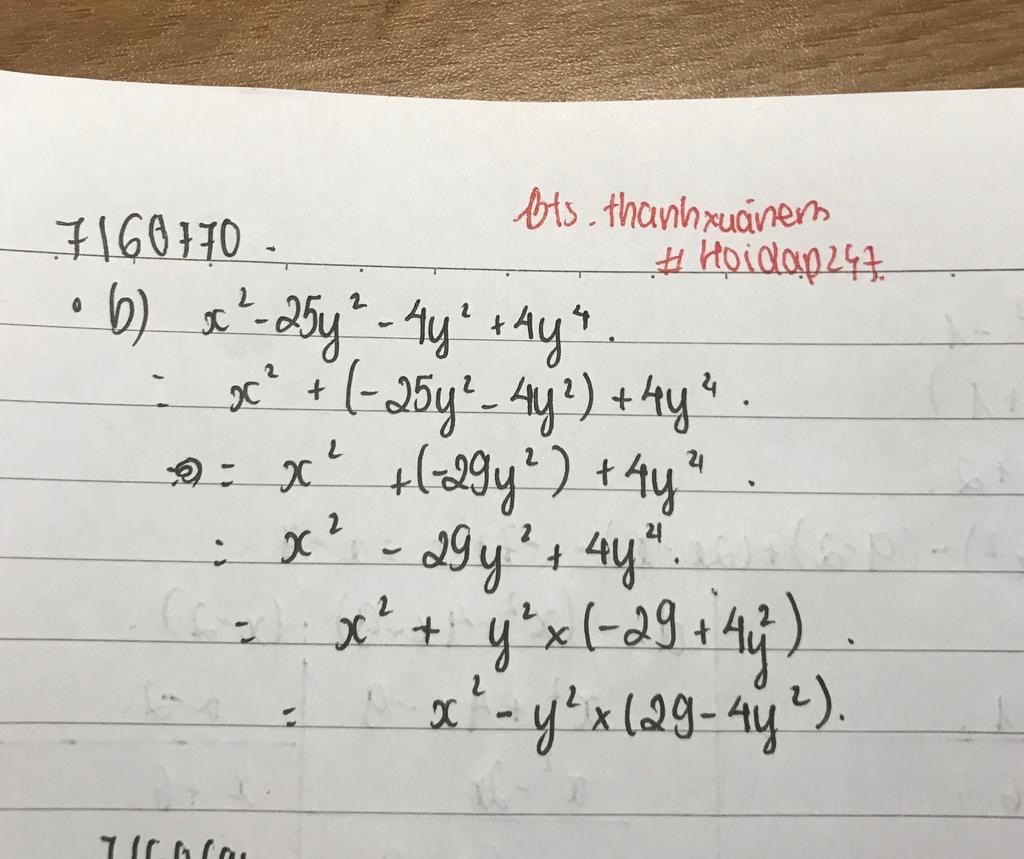 bts.thanhxuânem
7160770.
# Hoidap247.
• b) x² - 25y² - 4y² + 4y⁴.
= x² + (-25y² - 4y²) + 4y⁴.
= x² + (-29y²) + 4y⁴.
= x² - 29y² + 4y⁴.
= x² + y² × (-29 + 4y²).
= x² - y² × (29 - 4y²).